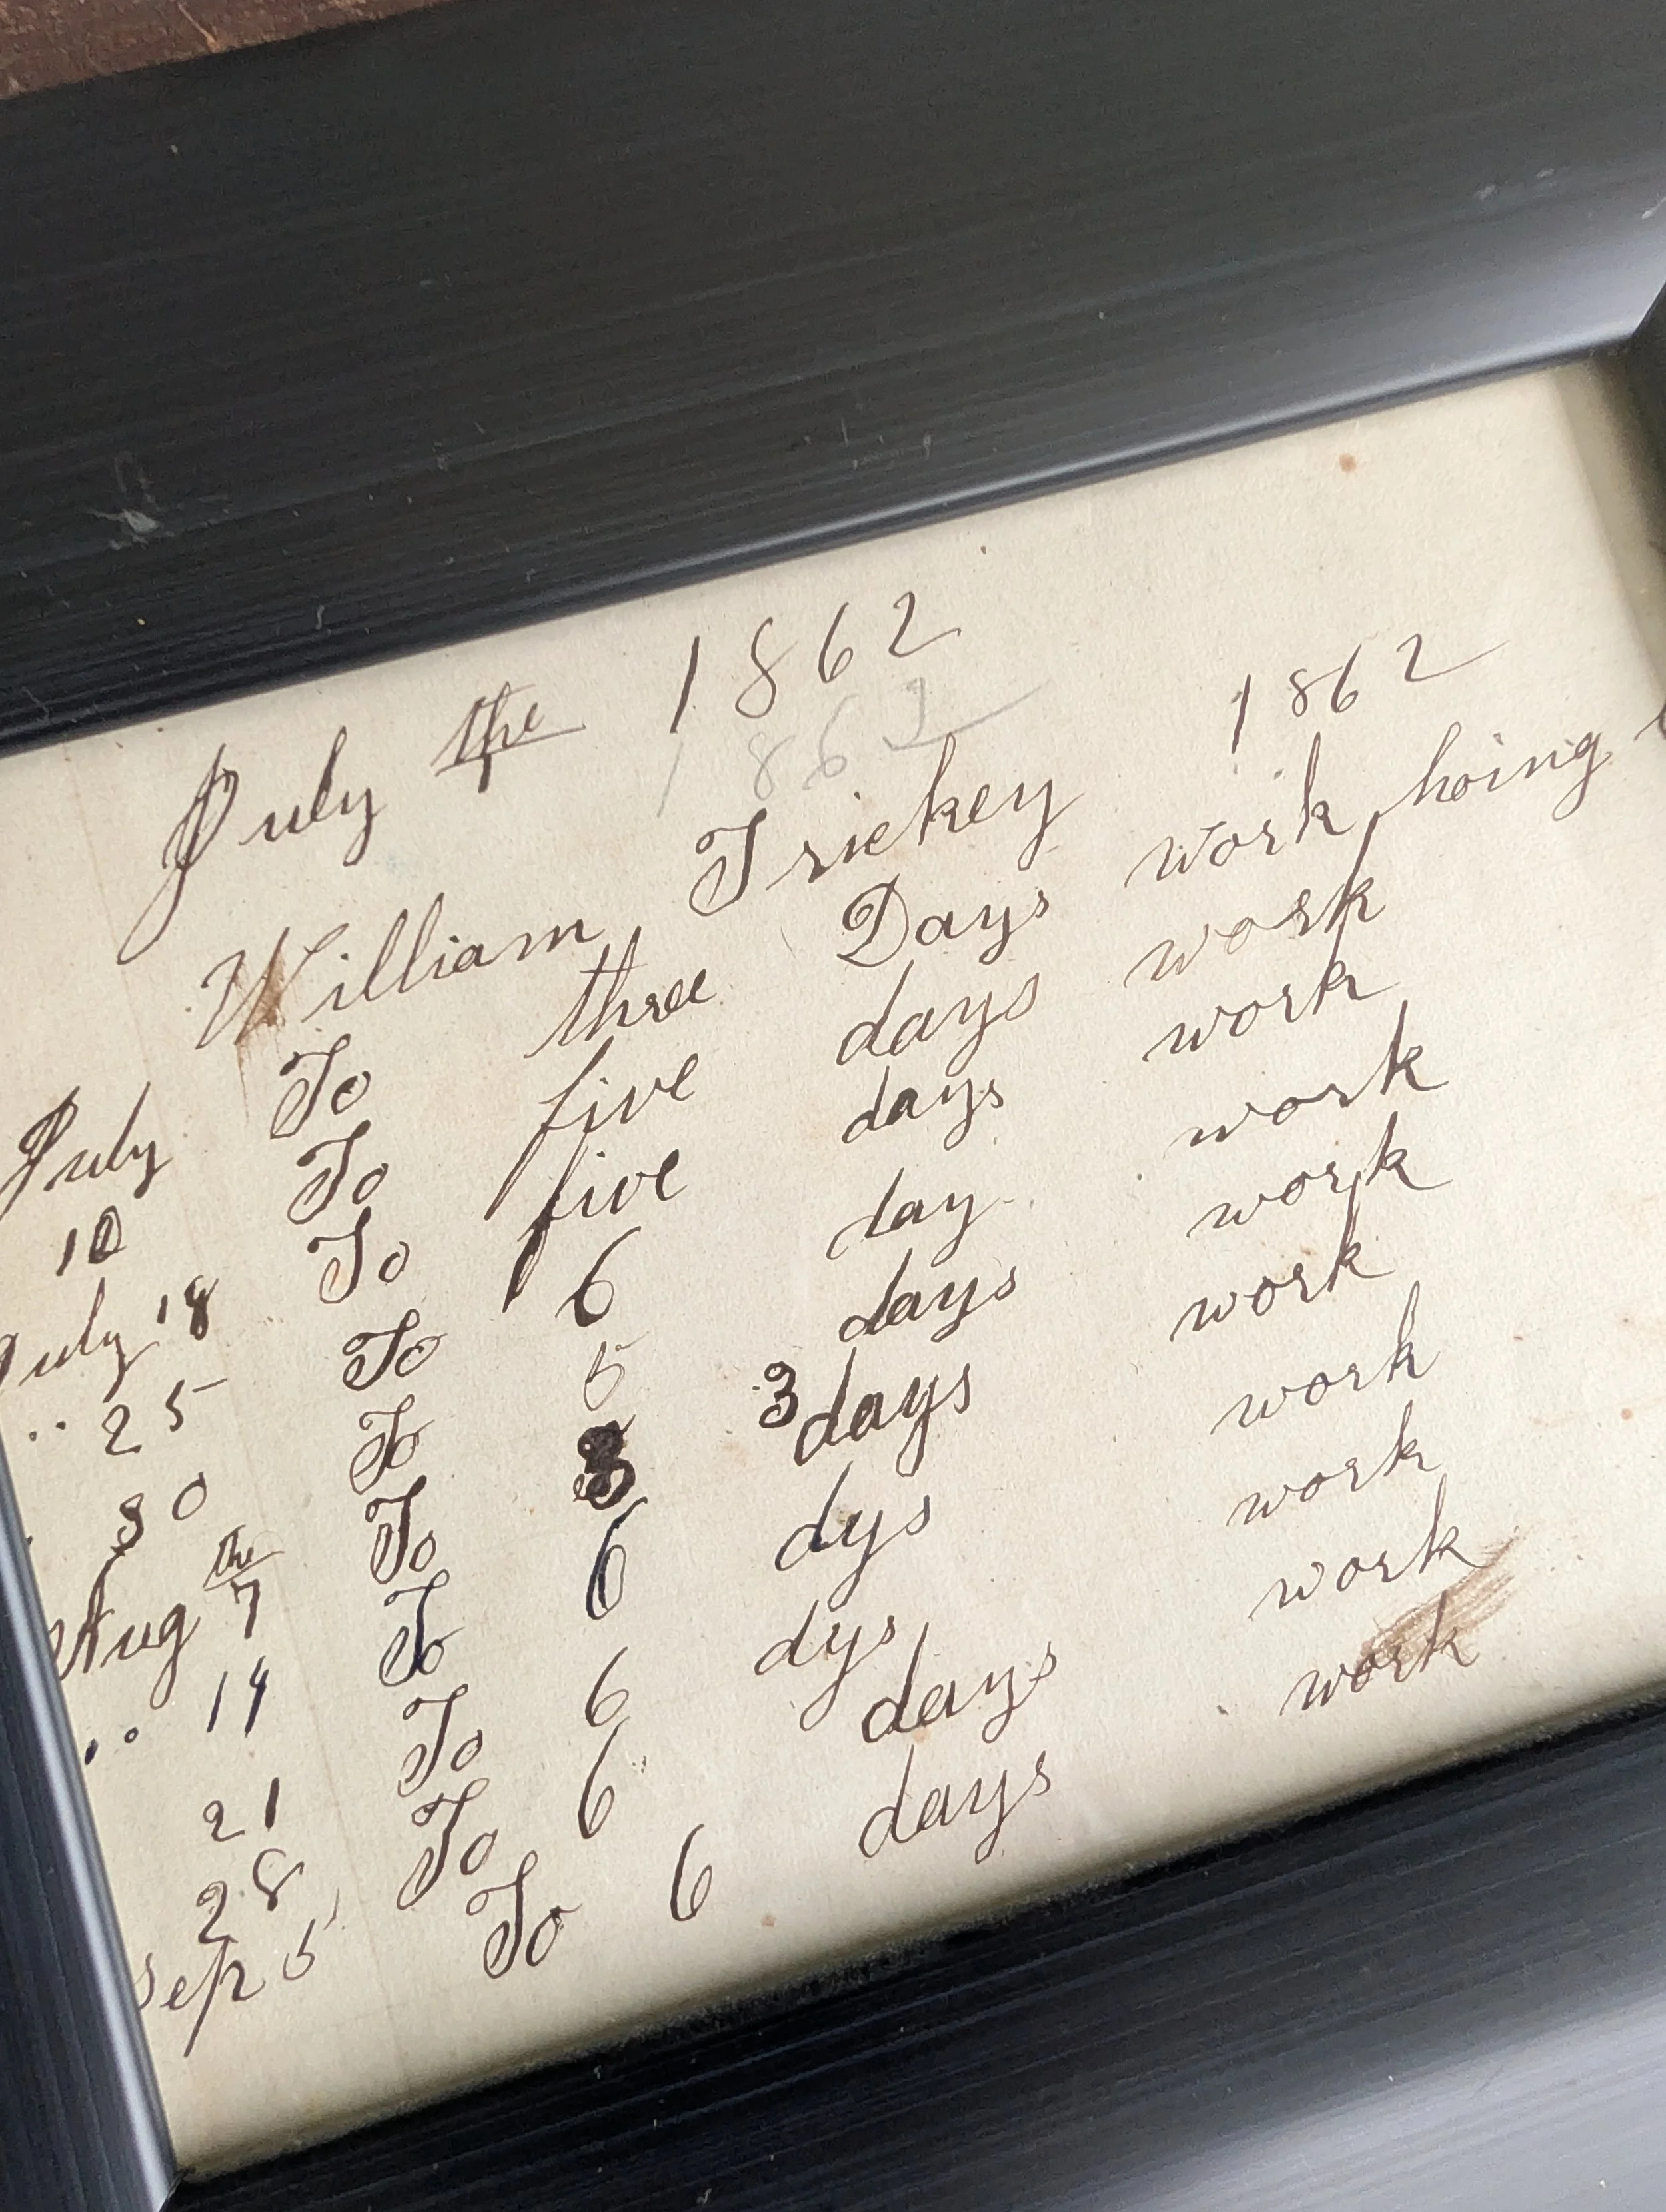 July the 1862
1862
William Trickey 1862
July To three Days work hoing
10 To five days work
July 18 To five days work
.. 25 To 6 day work
30 To 5 days work
Aug the 7 To 3 3 days work
.. 14 To 6 dys work
21 To 6 dys work
28 To 6 days work
Sep 5 To 6 days work